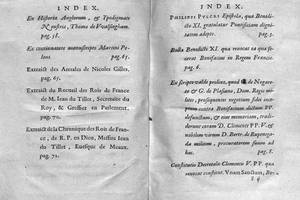 INDEX.
Ex Historia Anglorum, & Ypodigmate
Neustriæ, Thomæ de Vualsingham.
pag. 58.
Ex continuatore manuscripto Martini Po-
loni. pag. 65.
Extraict des Annales de Nicoles Gilles,
pag. 65.
Extraict du Recueil des Rois de France
de M. Iean du Tillet, Secretaire du
Roy, & Greffier en Parlement,
pag. 70.
Extraict de la Chronique des Rois de Fran-
ce, de R. P. en Dieu, Messire Iean
du Tillet, Euesque de Meaux.
pag. 72.
INDEX.
PHILIPPI PVLCRI Epistola, qua Benedi-
cto XI. gratulatur Pontificiam digni-
tatem adepto. pag. 5.
Bulla Benedicti XI. qua reuocat ea quæ fe-
cerat Bonifacius in Regem Franciæ.
pag. 6.
Ex scripto valde prolixo, quod de Negare-
to & G. de Plasiano, Dom. Regis mili-
tes, prosequentes negotium fidei com-
missum contra Bonifacium dictum PP.
defunctum, & eius memoriam, tradi-
derunt coram D. Clemente PP. V. &
militum viorum D. Bertr. de
milia coram D. Clemente PP. ad-
huc pag. 8.
Constitutio Decretalis Clementis V. PP. qua
reuocat constitut. Vnam Sanctam, Bo-